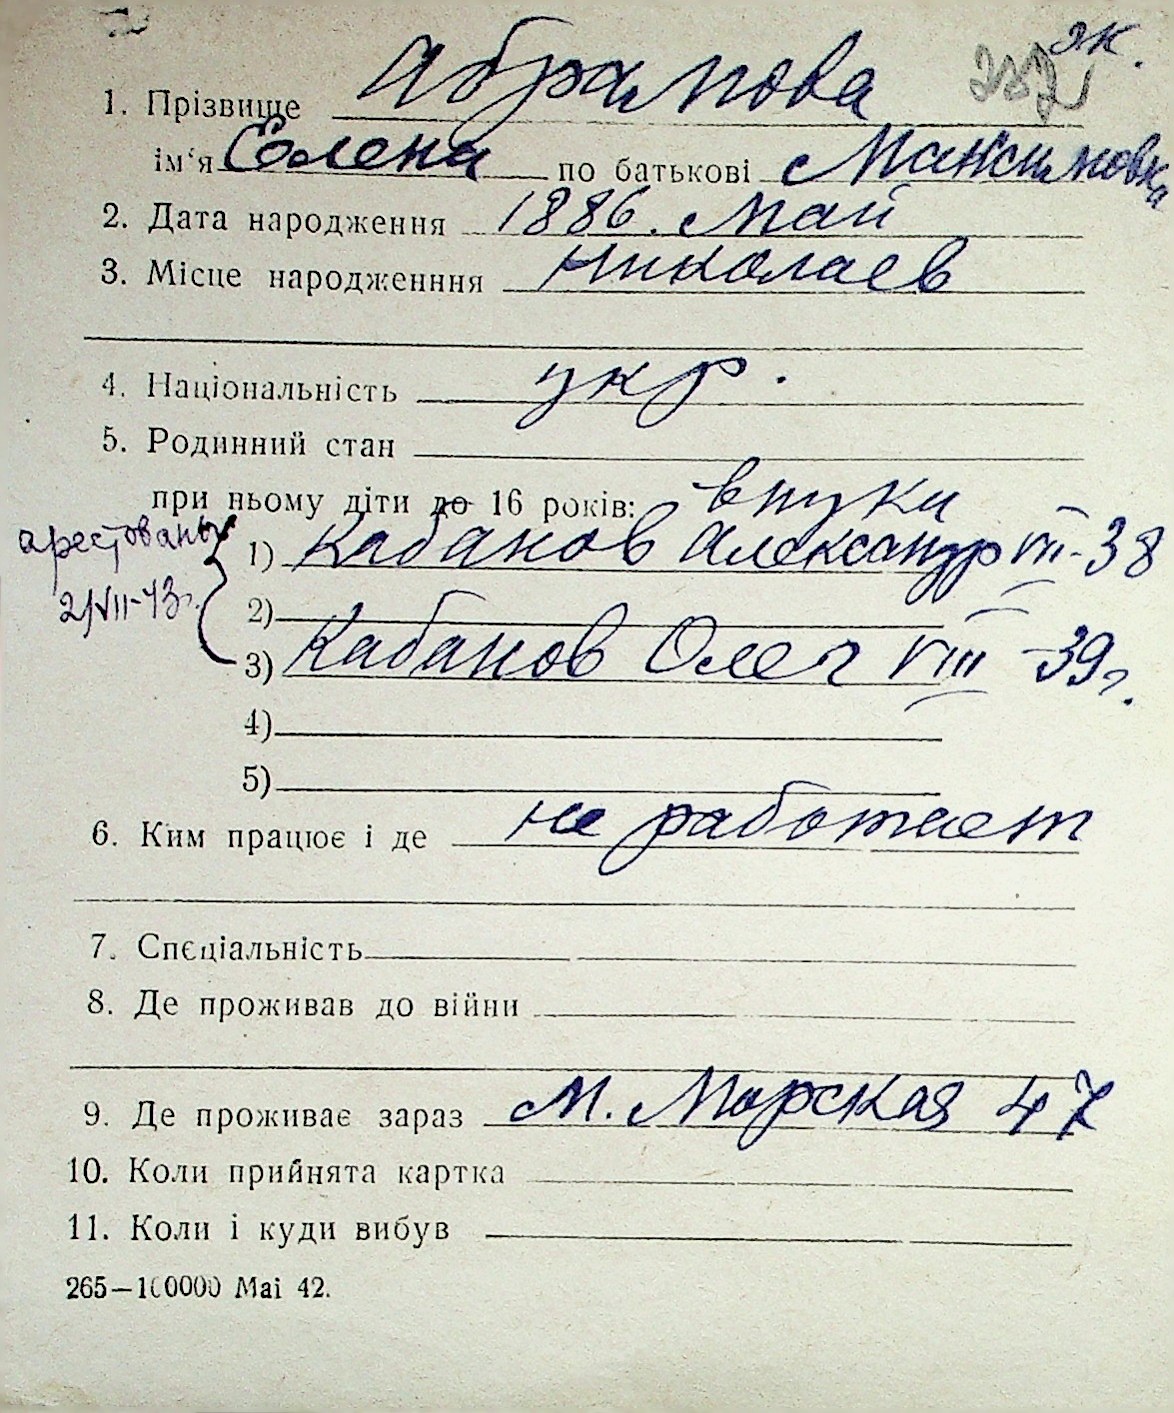 як.
1. Прізвище Абрамова
ім'я Елена по батькові Максимовна
2. Дата народження 1886. май
3. Місце народженння Николаев
4. Національність укр.
5. Родинний стан
при ньому діти до 16 років: внуки
арестованы 1) Кабанов Александр VII-38
2/VII-43г. 2)
3) Кабанов Олег VIII-39г.
4)
5)
6. Ким працює і де не работает
7. Спєціальність
8. Де проживав до війни
9. Де проживає зараз М. Морская 47
10. Коли прийнята картка
11. Коли і куди вибув
265—100000 Mai 42.